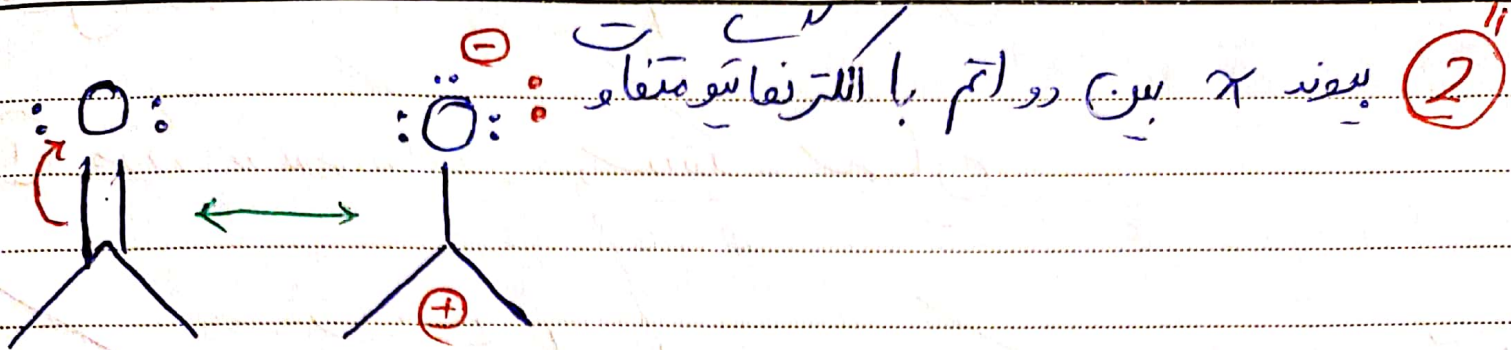 ② پیوند π بین دو اتم با الکترنفاتیو متفاوت :
:O: ⊖
:Ö:
⊕